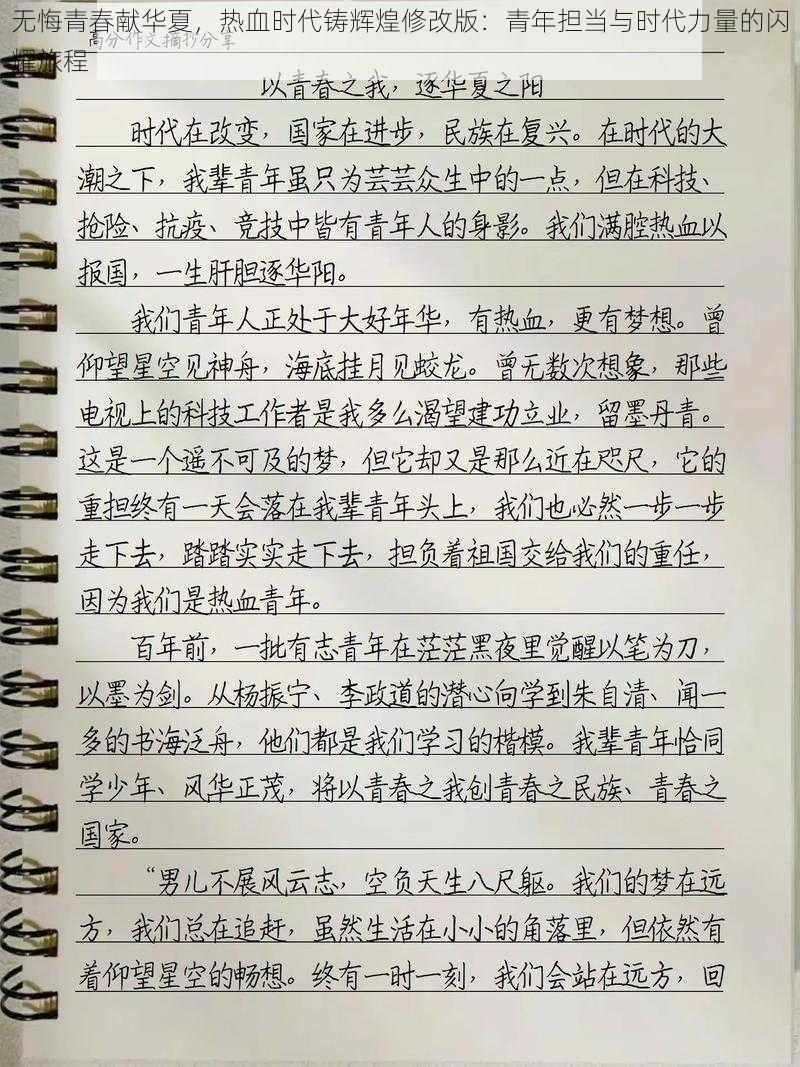 无悔青春献华夏，热血时代铸辉煌修改版：青年担当与时代力量的闪
耀旅程
高分作文摘抄分享
以青春之我，逐华夏之阳
时代在改变，国家在进步，民族在复兴。在时代的大
潮之下，我辈青年虽只为芸芸众生中的一点，但在科技、
抢险、抗疫、竞技中皆有青年人的身影。我们满腔热血以
报国，一生肝胆逐华阳。
我们青年人正处于大好年华，有热血，更有梦想。曾
仰望星空见神舟，海底挂月见蛟龙。曾无数次想象，那些
电视上的科技工作者是我多么渴望建功立业，留墨丹青。
这是一个遥不可及的梦，但它却又是那么近在咫尺，它的
重担终有一天会落在我辈青年头上，我们也必然一步一步
走下去，踏踏实实走下去，担负着祖国交给我们的重任，
因为我们是热血青年。
百年前，一批有志青年在茫茫黑夜里觉醒以笔为刀，
以墨为剑。从杨振宁、李政道的潜心向学到朱自清、闻一
多的书海泛舟，他们都是我们学习的楷模。我辈青年恰同
学少年、风华正茂，将以青春之我创青春之民族、青春之
国家。
“男儿不展风云志，空负天生八尺躯。我们的梦在远
方，我们总在追赶，虽然生活在小小的角落里，但依然有
着仰望星空的畅想。终有一时一刻，我们会站在远方，回